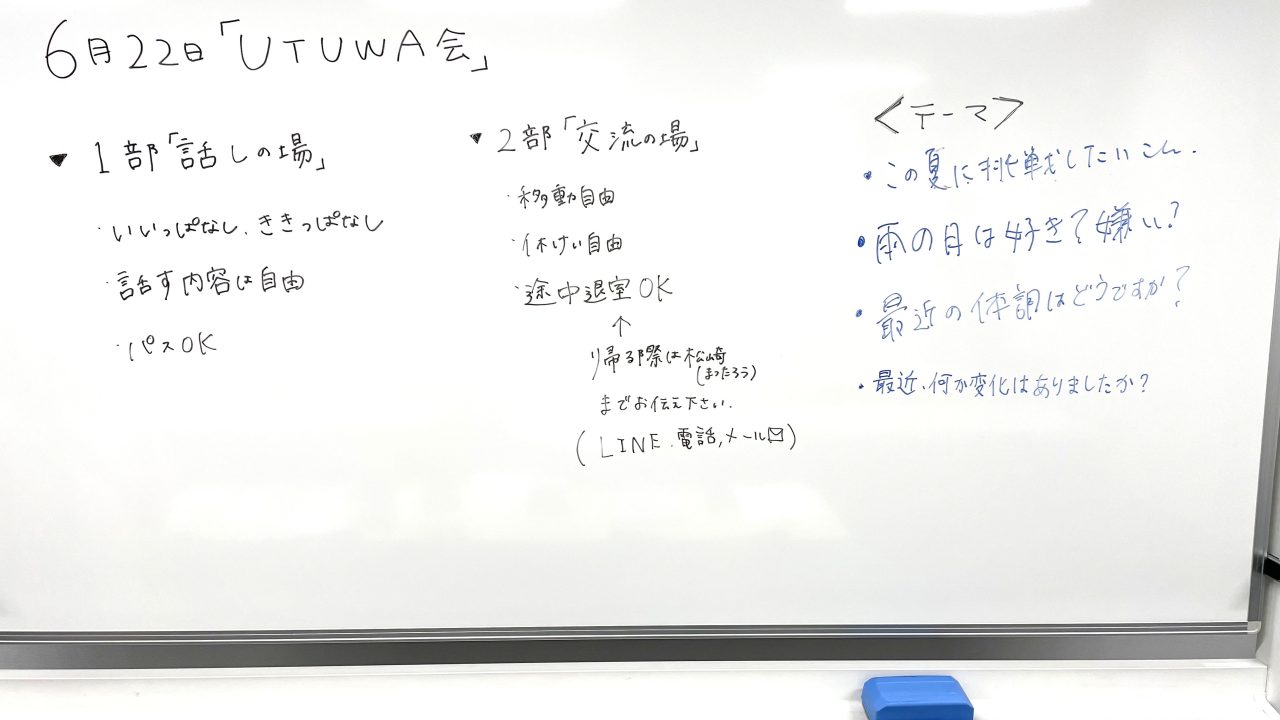 6月22日「UTUWA会」
▼ 1部「話しの場」
・いいっぱなし、ききっぱなし
・話す内容は自由
・パスOK
▼ 2部「交流の場」
・移動自由
・休けい自由
・途中退室OK
↑
帰る際は松崎
(まったろう)
までお伝え下さい.
(LINE、電話,メール✉)
<テーマ>
・この夏に挑戦したいこと.
・雨の日は好き?嫌い?
・最近の体調はどうですか?
・最近、何か変化はありましたか?